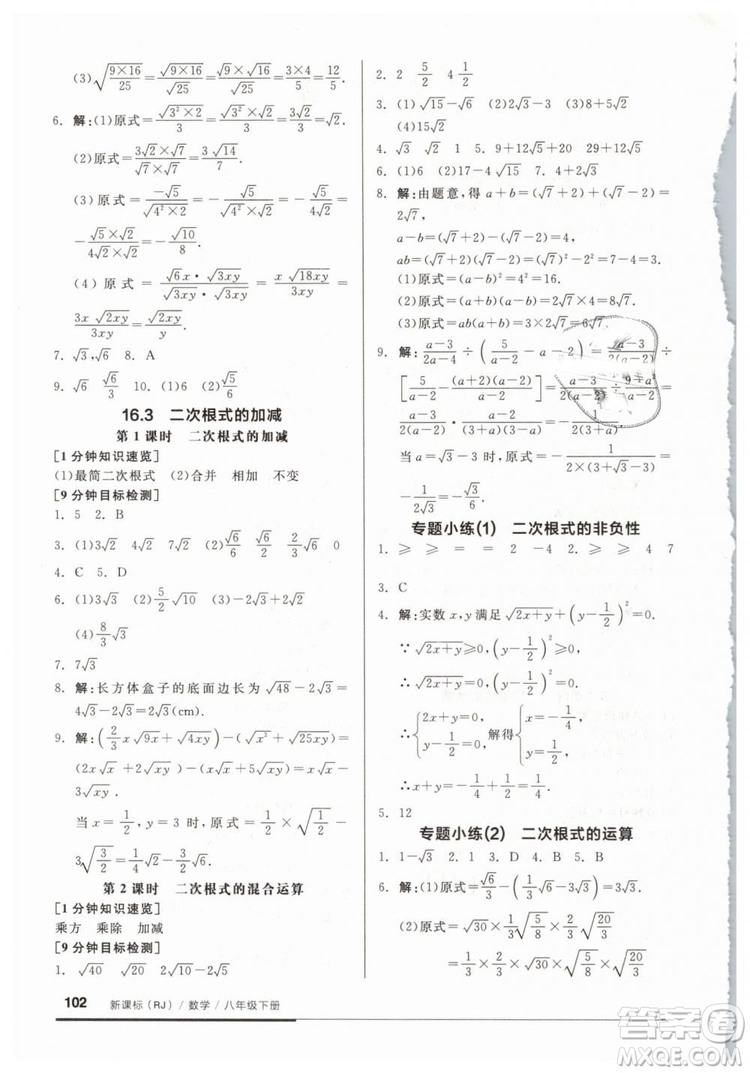 (3)√(9×16/25)=√(9×16)/√25=(√9×√16)/√25=(3×4)/5=12/5.
6. 解:(1)原式=√(3²×2)/3=(√3²×√2)/3=√2.
(2)原式=(3√2×√7)/(√7×√7)=3√14/7.
(3)原式=-√5/√(4²×2)=-√5/(4√2)=
-(√5×√2)/(4√2×√2)=-√10/8.
(4)原式=(√6x·√3xy)/(√3xy·√3xy)=x√18xy/3xy=
3x√2xy/3xy=√2xy/y.
7. √3 √3 8. A
9. √6 √6/3 10. (1)√6 (2)√6/6
16.3 二次根式的加减
第1课时 二次根式的加减
[1分钟知识速览]
(1)最简二次根式 (2)合并 相加 不变
[9分钟目标检测]
1. 5 2. B
3. (1)3√2 4√2 √2 (2)√6/6 √6/2 √6 0
4. C 5. D
6. (1)3√3 (2)3/2√10 (3)-√2-6√3
(4)8/3√3
7. 7√3
8. 解:长方体盒子的底面边长为√48-2√3=
4√3-2√3=2√3(cm).
9. 解:(2/3x√9x+√4xy)-(√x³+√25xy)=
(2x√x+2√xy)-(x√x+5√xy)=x√x-
3√xy.
当x=1/2,y=3时,原式=1/2×√(1/2)-
3√(3/2)=√2/4-3√6/2.
第2课时 二次根式的混合运算
[1分钟知识速览]
乘方 乘除 加减
[9分钟目标检测]
1. √40 √20 2√10 2√5
102 新课标(RJ)/数学/八年级下册
2. 2 5/2 4 1/2
3. (1)√15-√6 (2)2√3+√6 (3)5
(4)15√2
4. √3 √2 1 5. 9+12√5+20 29+12√5
6. (1)6 (2)17-4√15 7. 3+√3
8. 解:由题意,得a+b=(√7+2)+(√7-2)=
2√7,
a-b=(√7+2)-(√7-2)=4,
ab=(√7+2)(√7-2)=(√7)²-2²=7-4=3.
(1)原式=(a-b)²=4²=16.
(2)原式=(a+b)(a-b)=2√7×4=8√7.
(3)原式=ab(a+b)=3×2√7=6√7.
9. 解:(a-3)/(2a-4)÷(5/(a-2)-a-2)=(a-3)/(2(a-2))÷
[5/(a-2)-(a+2)(a-2)/(a-2)]=(a-3)/(2(a-2))÷(9-a²)/(a-2)=
(a-3)/(2(a-2))·(a-2)/((3+a)(3-a))=-1/(2(3+a)).
当a=√3-3时,原式=-1/(2×(3+√3-3))=
-1/(2√3)=-√3/6.
专题小练(1) 二次根式的非负性
1. ≥ ≥ = = 2 = 2. ≥ ≥ 4 7
3. C
4. 解:实数x,y满足√(2x+y)+(y-1/2)²=0.
∵√(2x+y)≥0,(y-1/2)²≥0,
∴√(2x+y)=0,(y-1/2)²=0.
∴{2x+y=0, y-1/2=0, 解得{x=-1/4, y=1/2.
∴x+y=-1/4+1/2=1/4.
5. 12
专题小练(2) 二次根式的运算
1. 1-√3 2. 1 3. D 4. D 5. B
6. 解:(1)原式=√6/3-(√6/3-3√3)=3√3.
(2)原式=√30×√(5/8)×√(20/3)=
√(30×5/8×20/3)=5√5.
答案圈